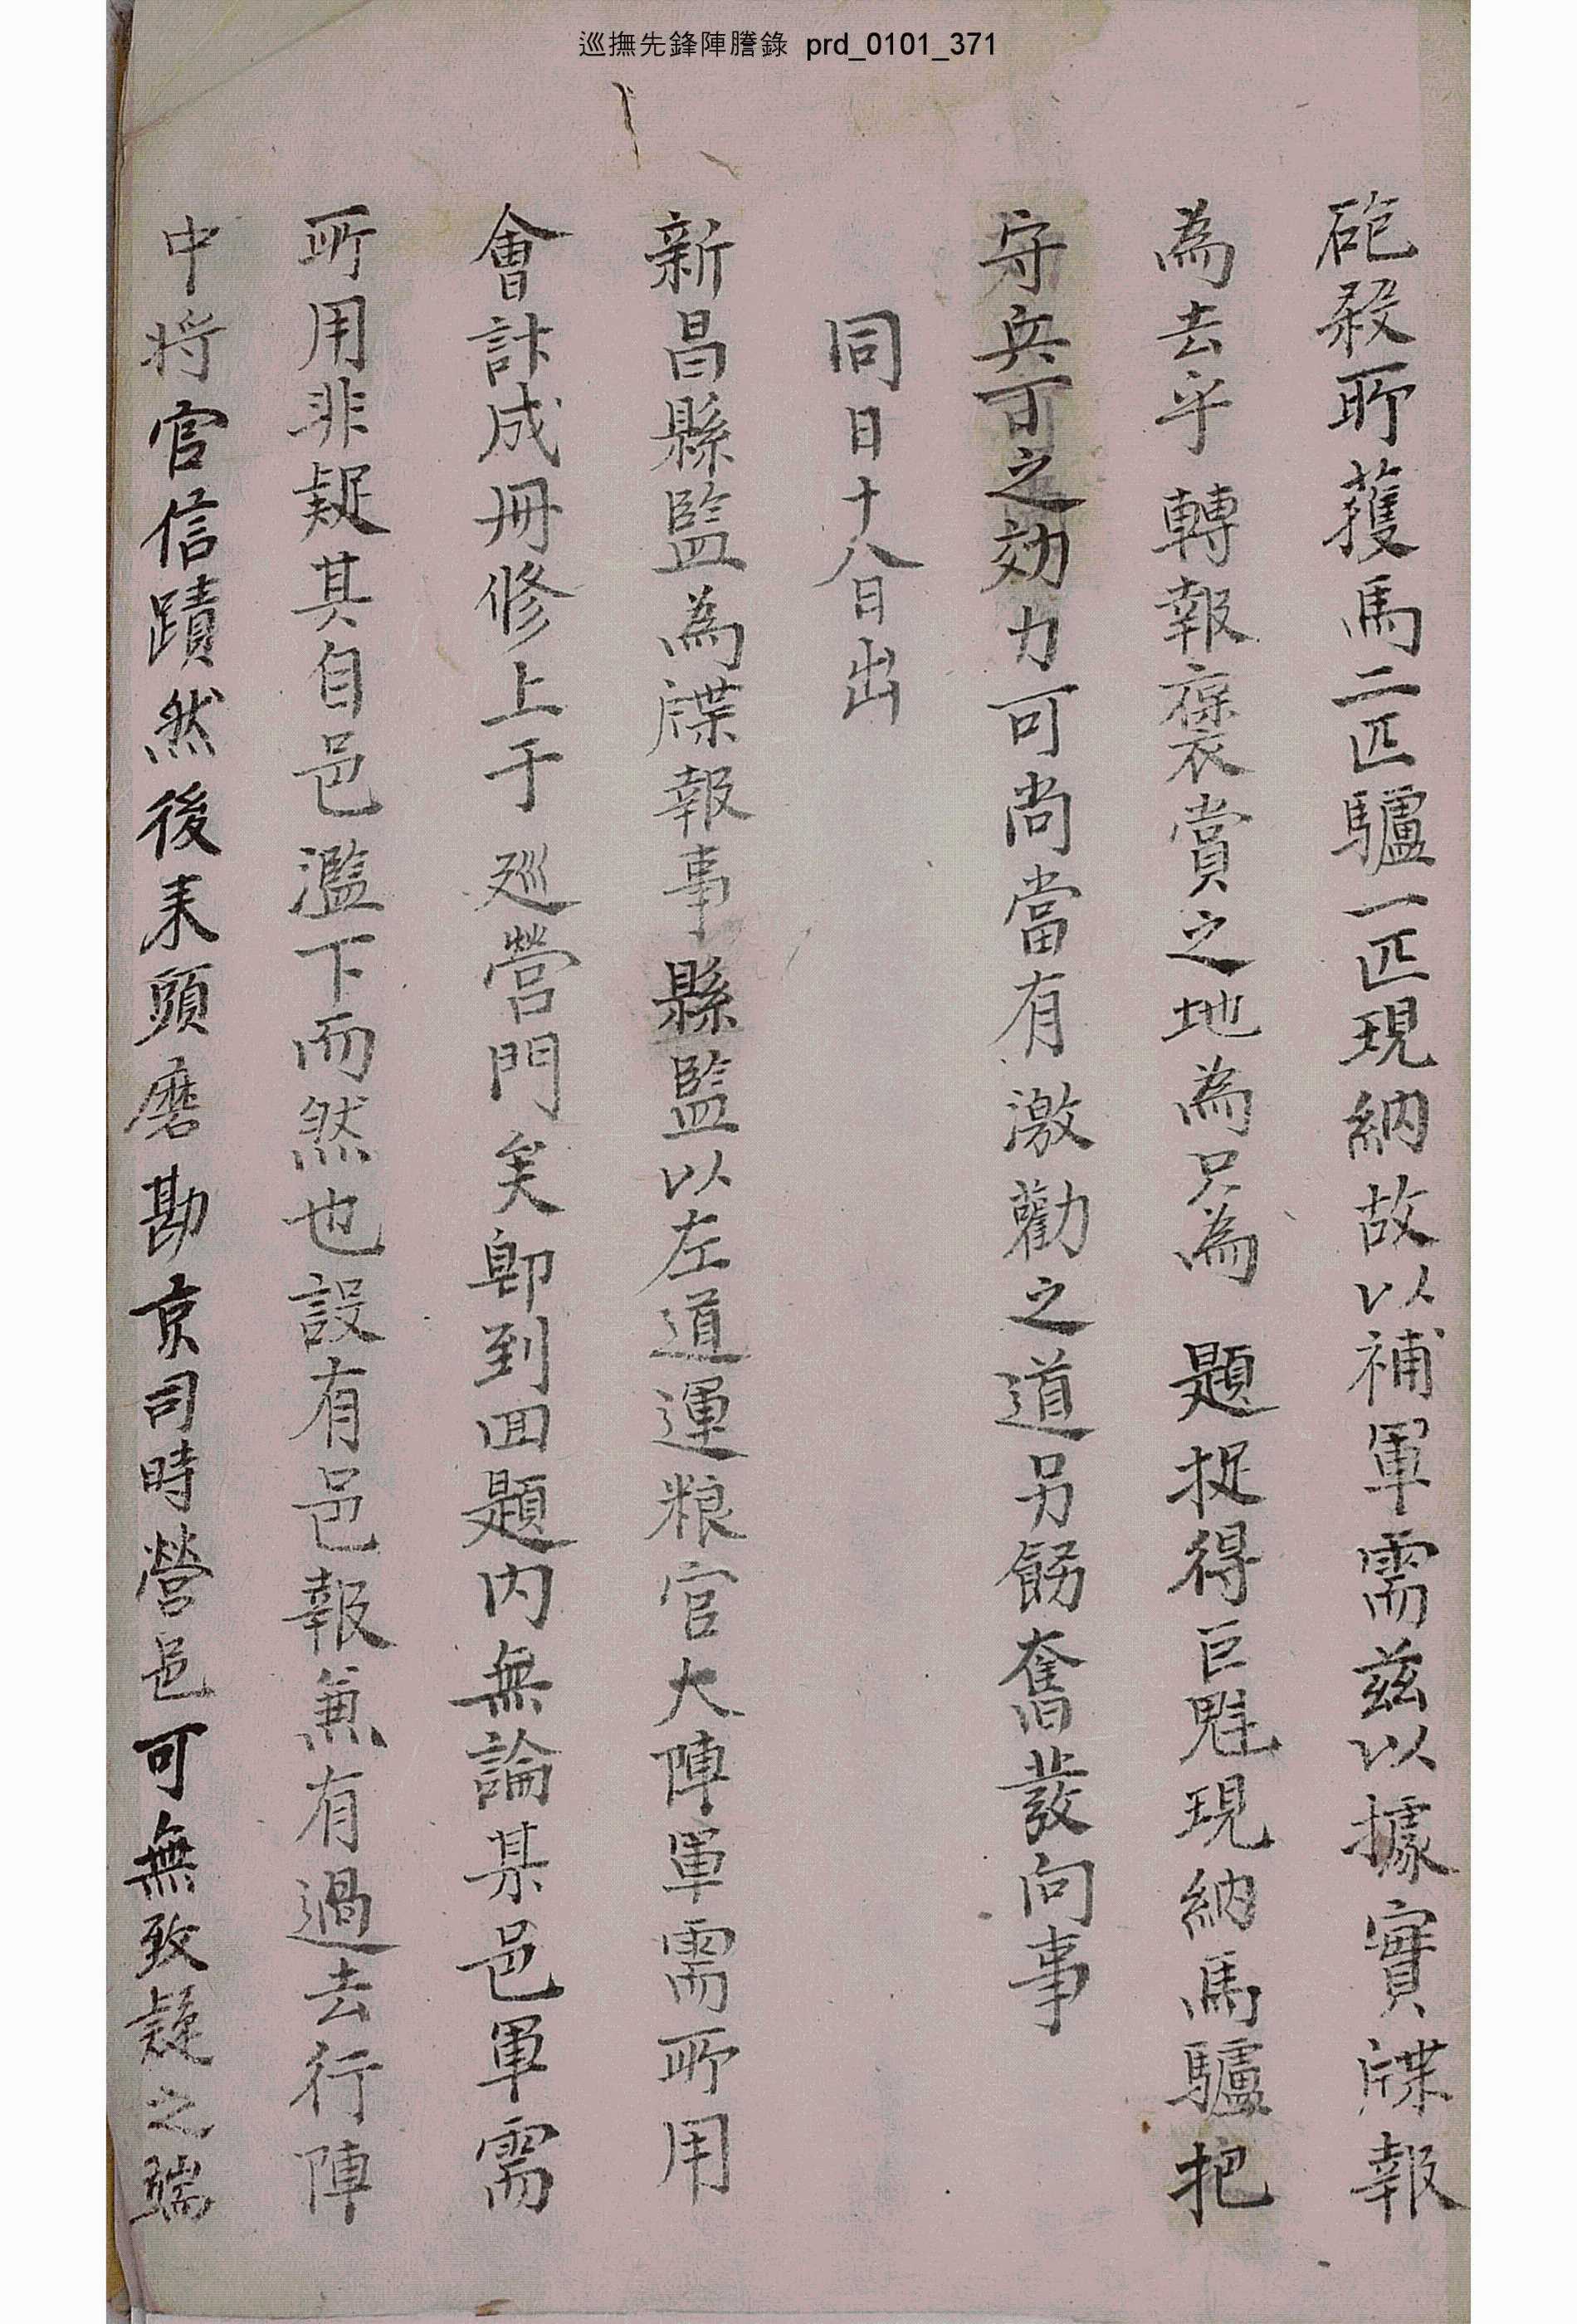 巡撫先鋒陣謄錄 prd_0101_371
砲殺所獲馬二匹驢一匹現納故以補軍需玆以據實牒報
為去乎 轉報褒賞之地為只為 題捉得巨魁現納馬驢把
守兵丁之効力可尚當有激勸之道另飭奮發向事
同日十八日出
新昌縣監為牒報事縣監以左道運粮官大陣軍需所用
會計成冊修上于 廵營門矣卽到回題內無論某邑軍需
所用非疑其自邑濫下而然也設有邑報兼有過去行陣
中將官信蹟然後耒頭磨勘京司時營邑可無致疑之端